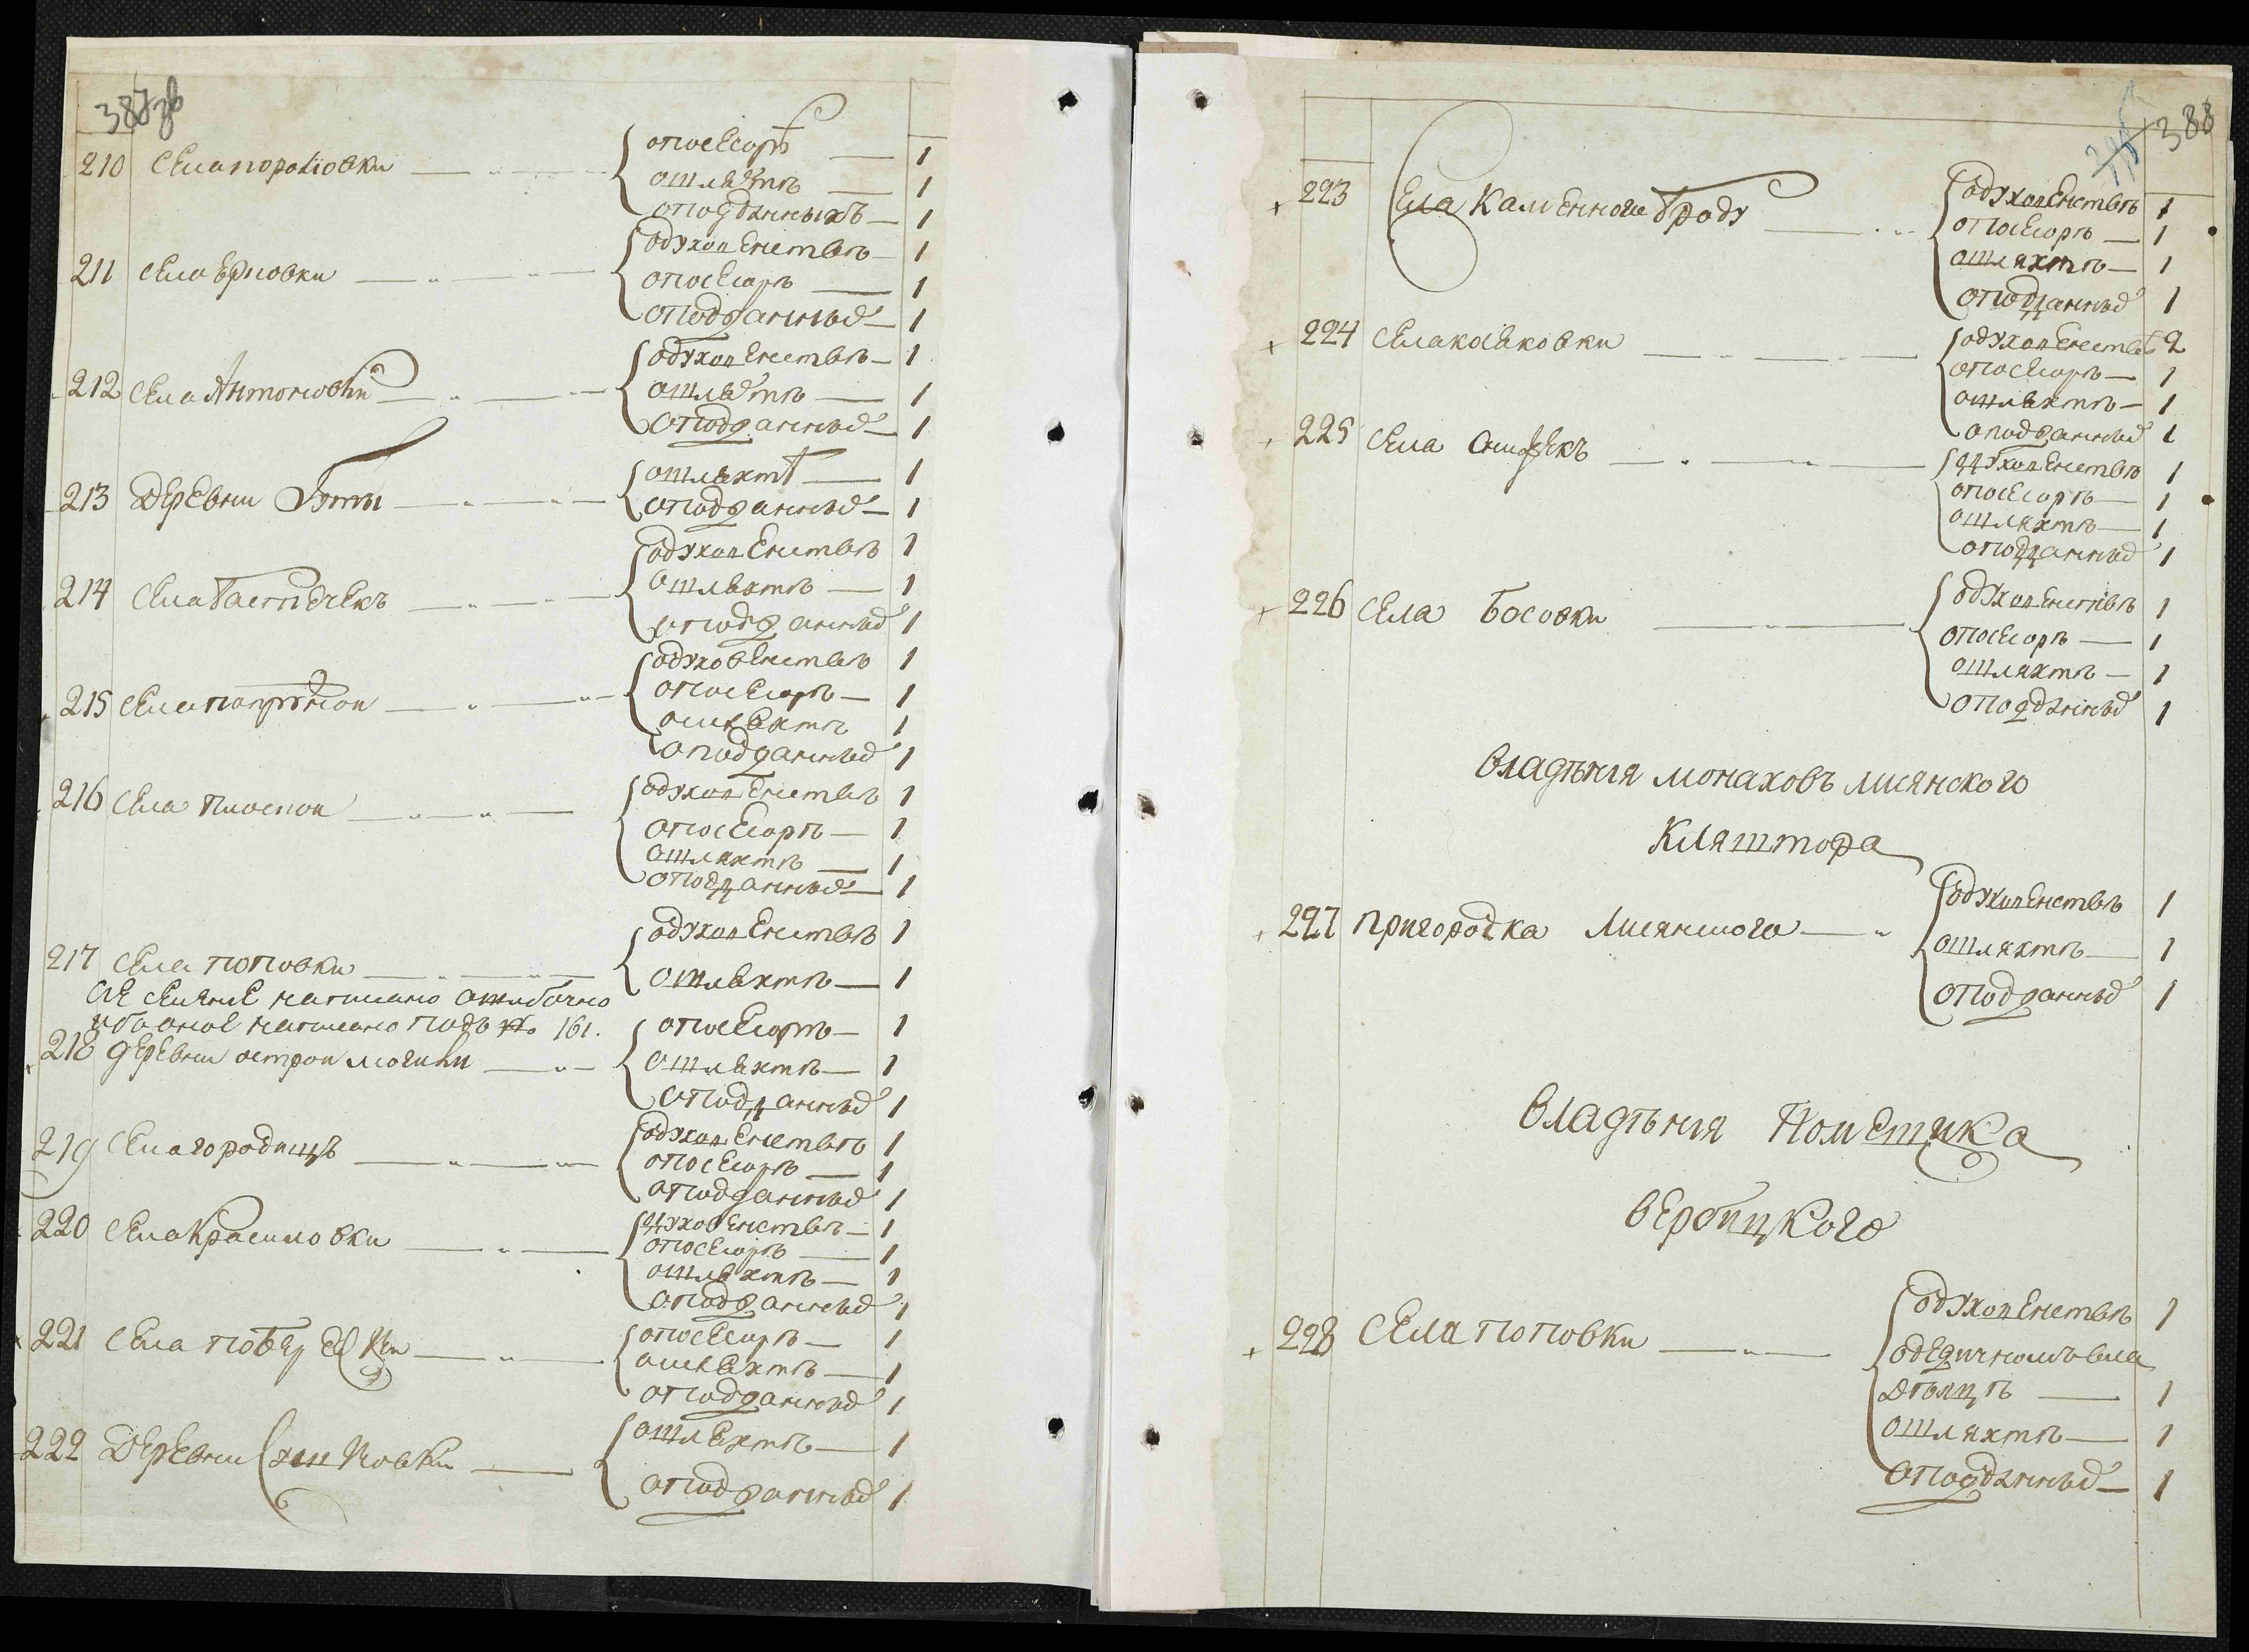 387 об
210 села поратовки { о посесоре — 1
о шляхте — 1
о подданныхъ — 1
211 села Ерповки { о духовенстве — 1
о посесоре — 1
о подданных — 1
212 села Антоновки { о духовенстве — 1
о шляхте — 1
о подданных — 1
213 деревни Гуты { о шляхте — 1
о подданных — 1
214 села { о духовенстве 1
о шляхте — 1
о подданных 1
215 села { о духовенстве 1
о посесоре — 1
о шляхте 1
о подданных 1
216 села плоской { о духовенстве 1
о посесоре — 1
о шляхте — 1
о подданных — 1
217 села поповки { о духовенстве 1
о шляхте — 1
сие селение написано ошибочно
ибо оное написано подъ № 161.
218 деревни острой могилы { о посесоре — 1
о шляхте — 1
о подданных 1
219 села городищъ { о духовенстве 1
о посесоре — 1
о подданных 1
220 села Красиловки { о духовенстве — 1
о посесоре — 1
о шляхте — 1
о подданных 1
221 села побережки { о посесоре — 1
о шляхте — 1
о подданных 1
222 деревни { о шляхте — 1
о подданных 1
388
223 Села Каменного Броду { о духовенстве 1
о посесоре — 1
о шляхте — 1
о подданных 1
224 села косяковки { о духовенстве 2
о посесоре — 1
о шляхте — 1
о подданных 1
225 села { о духовенстве 1
о посесоре — 1
о шляхте — 1
о подданных 1
226 села Босовки { о духовенстве 1
о посесоре — 1
о шляхте — 1
о подданных 1
владѣния монаховъ лисянского
кляштора
227 пригородка Лисянского — { о духовенстве 1
о шляхте — 1
о подданных 1
владѣния помещика
вербицкого
228 села поповки { о духовенстве 1
о дедичномъ вла
дѣлцѣ — 1
о шляхте — 1
о подданных — 1